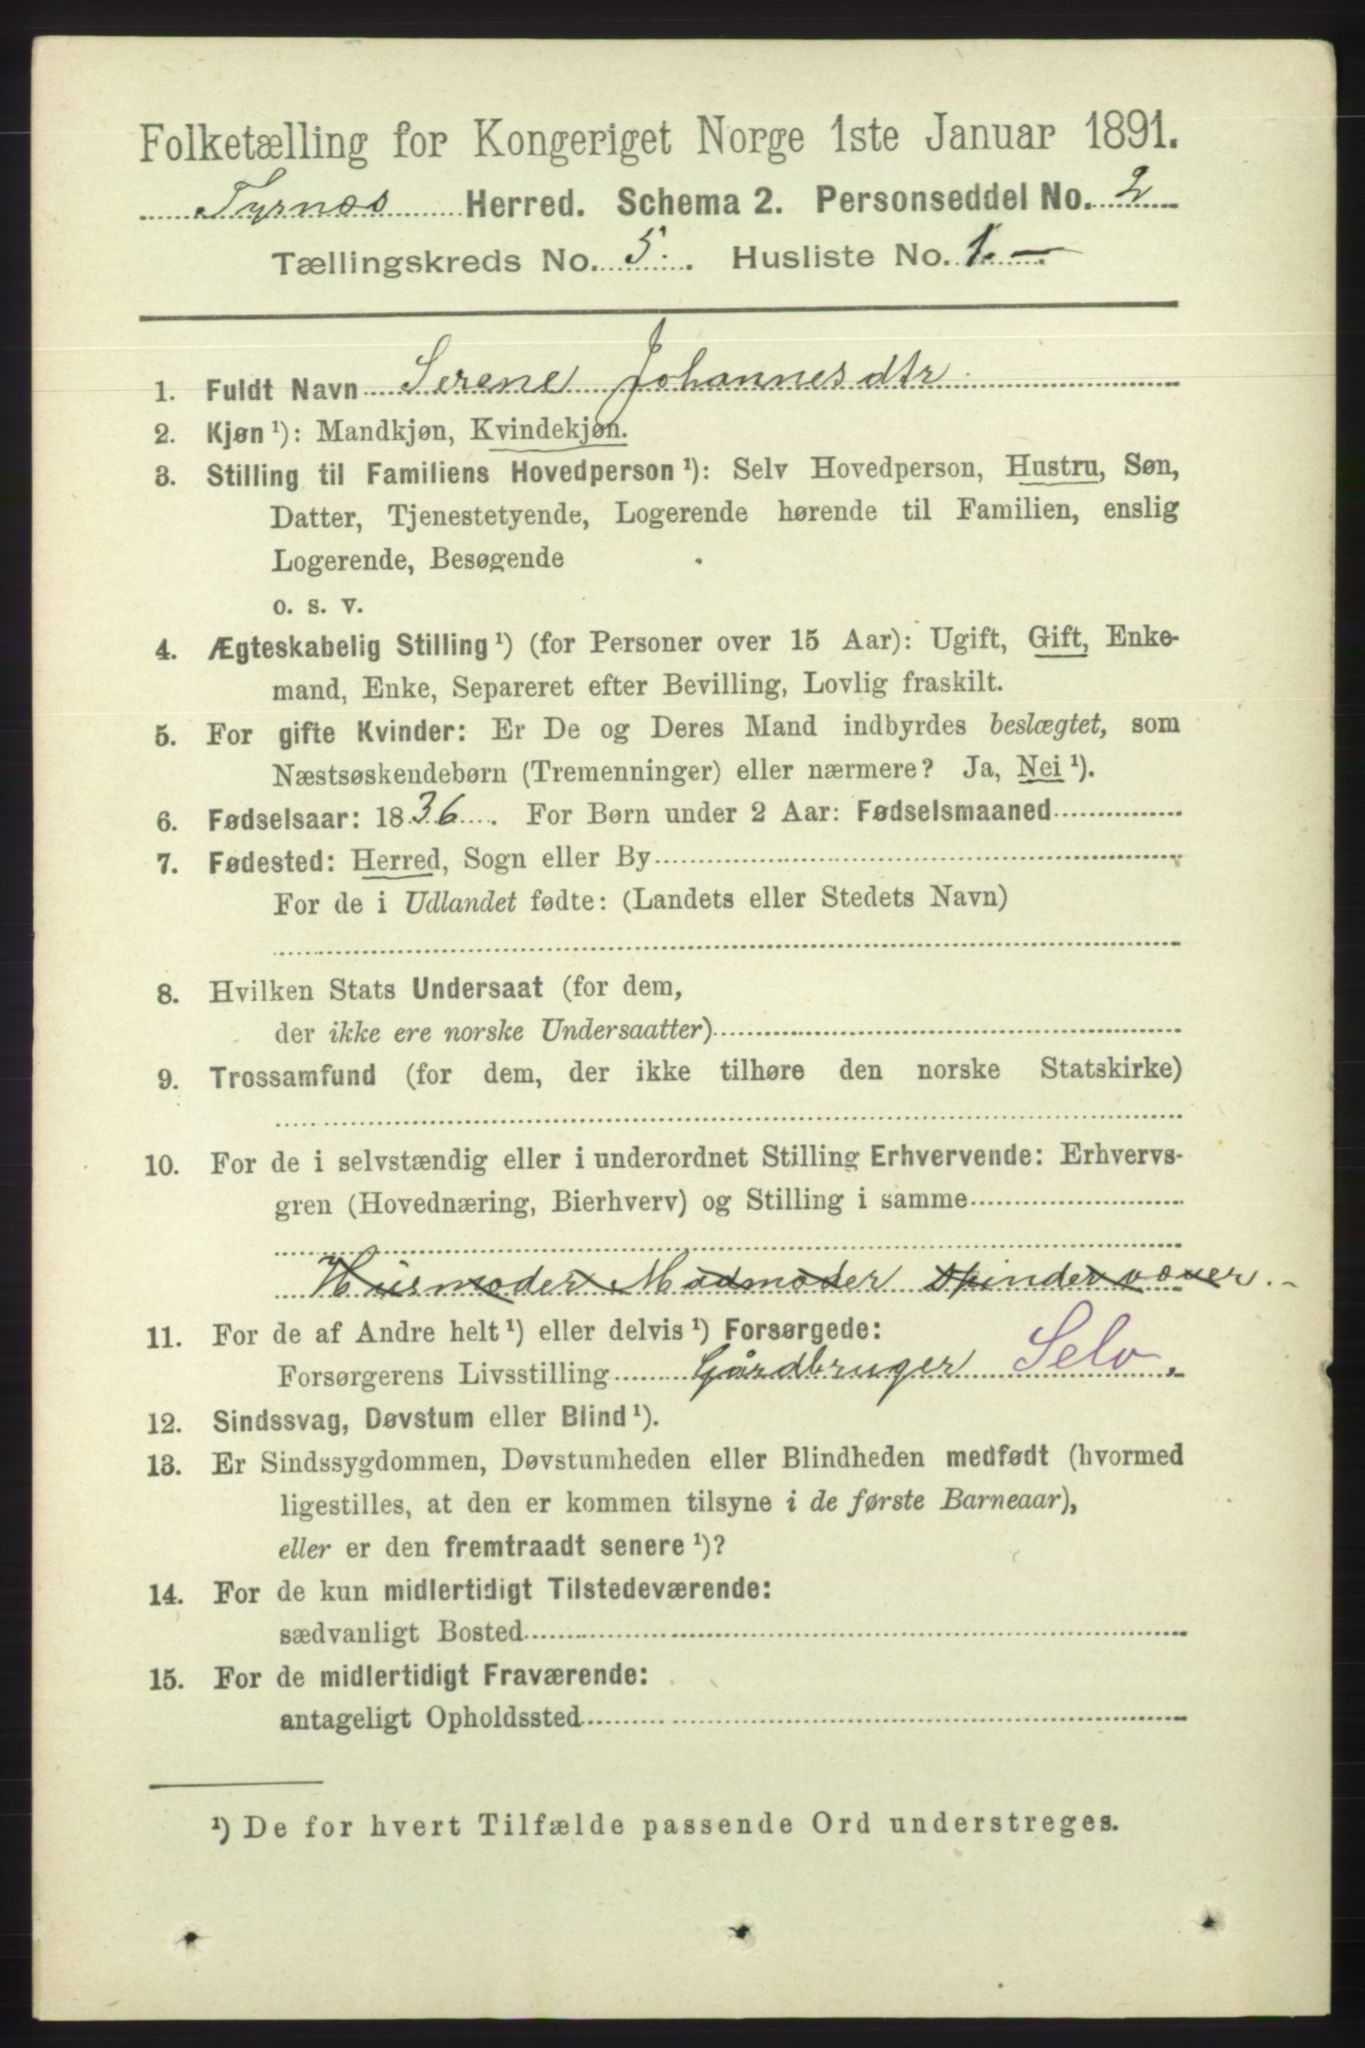 Folketælling for Kongeriget Norge 1ste Januar 1891.
Tyrnæs Herred. Schema 2. Personseddel No. 2
Tællingskreds No. 5. Husliste No. 1.—
1. Fuldt Navn Serene Johannesdtr
2. Kjøn ¹): Mandkjøn, Kvindekjøn.
3. Stilling til Familiens Hovedperson ¹): Selv Hovedperson, Hustru, Søn,
Datter, Tjenestetyende, Logerende hørende til Familien, enslig
Logerende, Besøgende
o. s. v.
4. Ægteskabelig Stilling ¹) (for Personer over 15 Aar): Ugift, Gift, Enke-
mand, Enke, Separeret efter Bevilling, Lovlig fraskilt.
5. For gifte Kvinder: Er De og Deres Mand indbyrdes beslægtet, som
Næstsøskendebørn (Tremenninger) eller nærmere? Ja, Nei ¹).
6. Fødselsaar: 1836. For Børn under 2 Aar: Fødselsmaaned
7. Fødested: Herred, Sogn eller By
For de i Udlandet fødte: (Landets eller Stedets Navn)
8. Hvilken Stats Undersaat (for dem,
der ikke ere norske Undersaatter)
9. Trossamfund (for dem, der ikke tilhøre den norske Statskirke)
10. For de i selvstændig eller i underordnet Stilling Erhvervende: Erhvervs-
gren (Hovednæring, Bierhverv) og Stilling i samme
Husmoder Madmoder spinder væver.-
11. For de af Andre helt ¹) eller delvis ¹) Forsørgede:
Forsørgerens Livsstilling Gårdbruger Selv.
12. Sindssvag, Døvstum eller Blind ¹).
13. Er Sindssygdommen, Døvstumheden eller Blindheden medfødt (hvormed
ligestilles, at den er kommen tilsyne i de første Barneaar),
eller er den fremtraadt senere ¹)?
14. For de kun midlertidigt Tilstedeværende:
sædvanligt Bosted
15. For de midlertidigt Fraværende:
antageligt Opholdssted
¹) De for hvert Tilfælde passende Ord understreges.